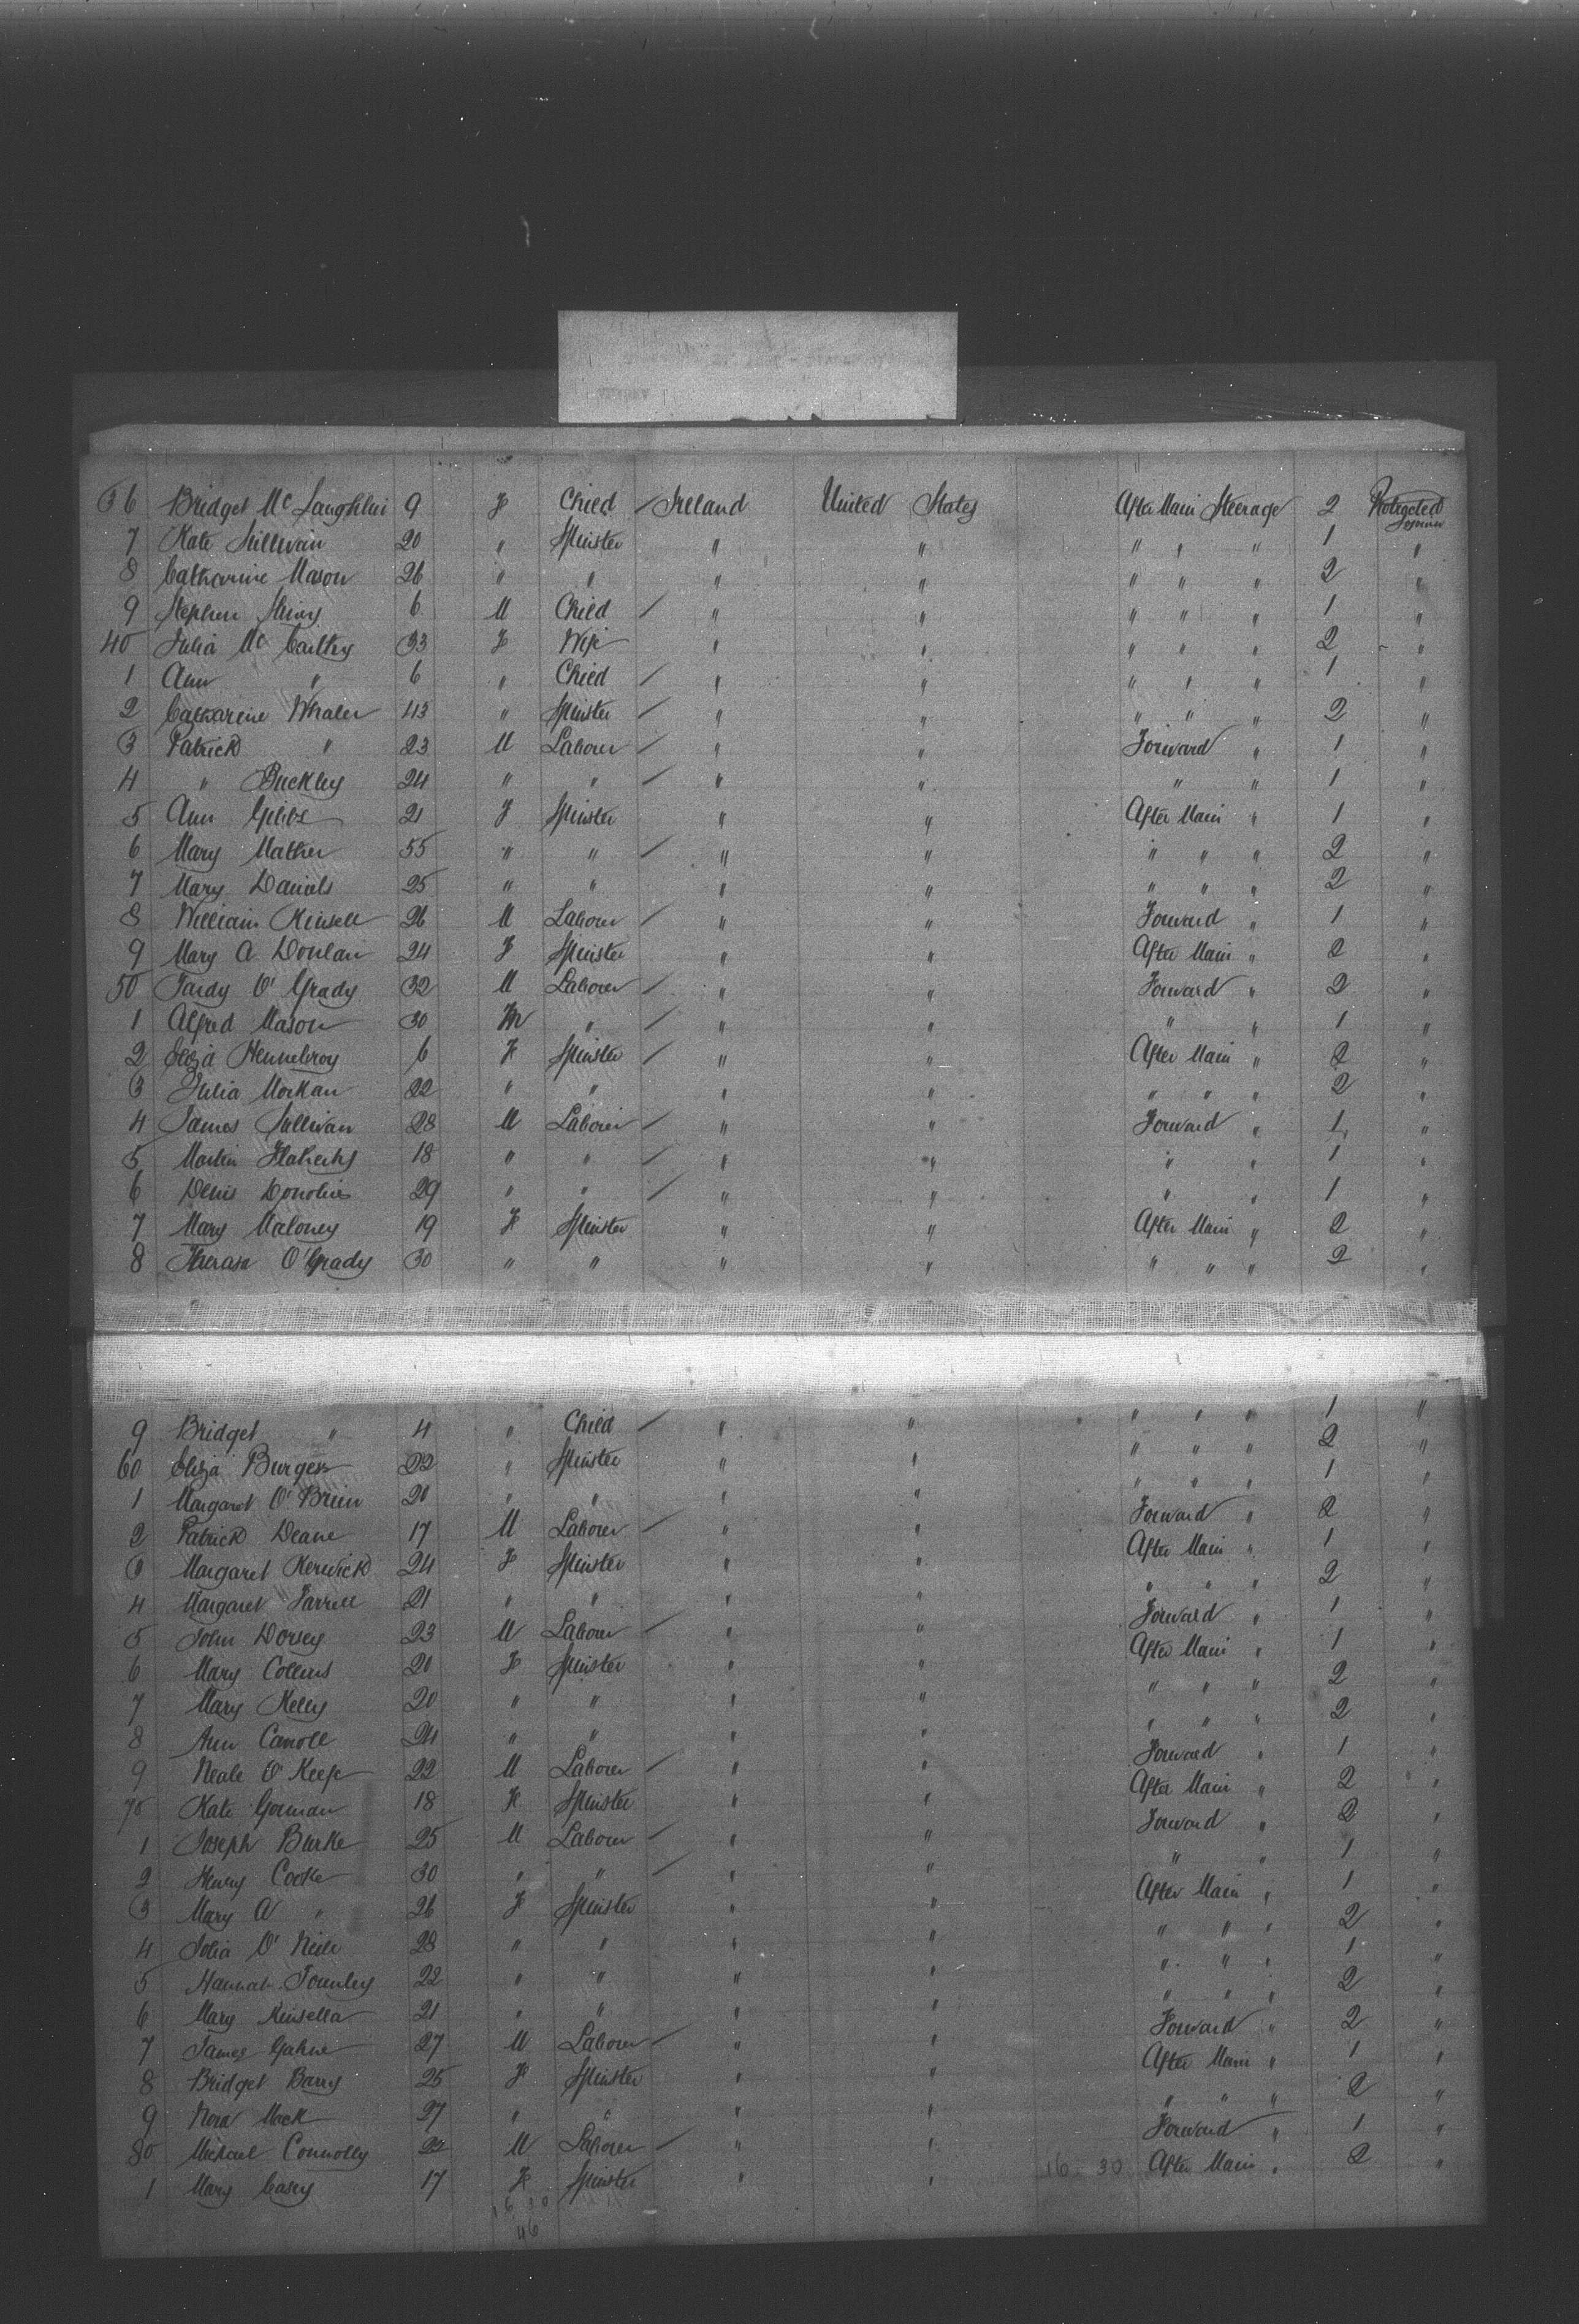 36 Bridget Mc Laughlin 9 F Child / Ireland United States After Main Steerage 2 Protracted Sojourn
7 Kate Sullivan 20 " Spinster " " " " " 1 "
8 Catharine Mason 26 " " " " " " " 2 "
9 Stephen 6 M Child / " " " " " 1 "
40 Julia Mc Carthy 33 F Wife " " " " " 2 "
1 Ann " 6 " Child / " " " " " 1 "
2 Catharine Whalen 43 " Spinster / " " " " " 2 "
3 Patrick " 23 M Laborer / " " Forward " 1 "
4 " Buckley 24 " " / " " " " 1 "
5 Ann Gibbs 21 F Spinster " " After Main " 1 "
6 Mary Mather 55 " " / " " " " " 2 "
7 Mary Daniels 25 " " " " " " " 2 "
8 William Kinsell 26 M Laborer / " " Forward " 1 "
9 Mary A Donlan 24 F Spinster " " After Main " 2 "
50 O' Grady 32 M Laborer / " " Forward " 2 "
1 Alfred Mason 30 M " / " " " " 1 "
2 Eliza Hennebroy 6 F Spinster / " " After Main " 2 "
3 Julia Morkan 22 " " " " " " " 2 "
4 James Sullivan 28 M Laborer / " " Forward " 1 "
5 Martin Flaherty 18 " " / " " " " 1 "
6 Denis 29 " " / " " " " 1 "
7 Mary Maloney 19 F Spinster " " After Main " 2 "
8 Therasa O'Grady 30 " " " " " " " 2 "
9 Bridget " 4 " Child / " " " " " 1 "
60 Eliza Burgess 22 " Spinster " " " " " 2 "
1 Margaret O' Brien 20 " " " " " " " 1 "
2 Patrick Deane 17 M Laborer / " " Forward " 2 "
3 Margaret Kerwick 24 F Spinster " " After Main " 1 "
4 Margaret Farrell 21 " " " " " " " 2 "
5 John Dorsey 23 M Laborer / " " Forward " 1 "
6 Mary Collins 20 F Spinster " " After Main " 1 "
7 Mary Kelly 20 " " " " " " " 2 "
8 Ann Carroll 24 " " " " " " " 2 "
9 Neale O' Keefe 22 M Laborer / " " Forward " 1 "
70 Kate Gorman 18 F Spinster " " After Main " 2 "
1 Joseph Burke 25 M Laborer / " " Forward " 2 "
2 Henry Cooke 30 " " / " " " " 1 "
3 Mary A " 26 F Spinster " " After Main " 1 "
4 O' Neile 28 " " " " " " " 2 "
5 Hannah Townley 22 " " " " " " " 1 "
6 Mary Kinsella 21 " " " " " " " 2 "
7 James 27 M Laborer / " " Forward " 2 "
8 Bridget Barry 25 F Spinster " " After Main " 1 "
9 Nora Mack 27 " " " " " " " 2 "
80 Michael Connolly 22 M Laborer / " " Forward " 1 "
1 Mary Casey 17 F Spinster " " 16 30 After Main " 2 "
16 30
46